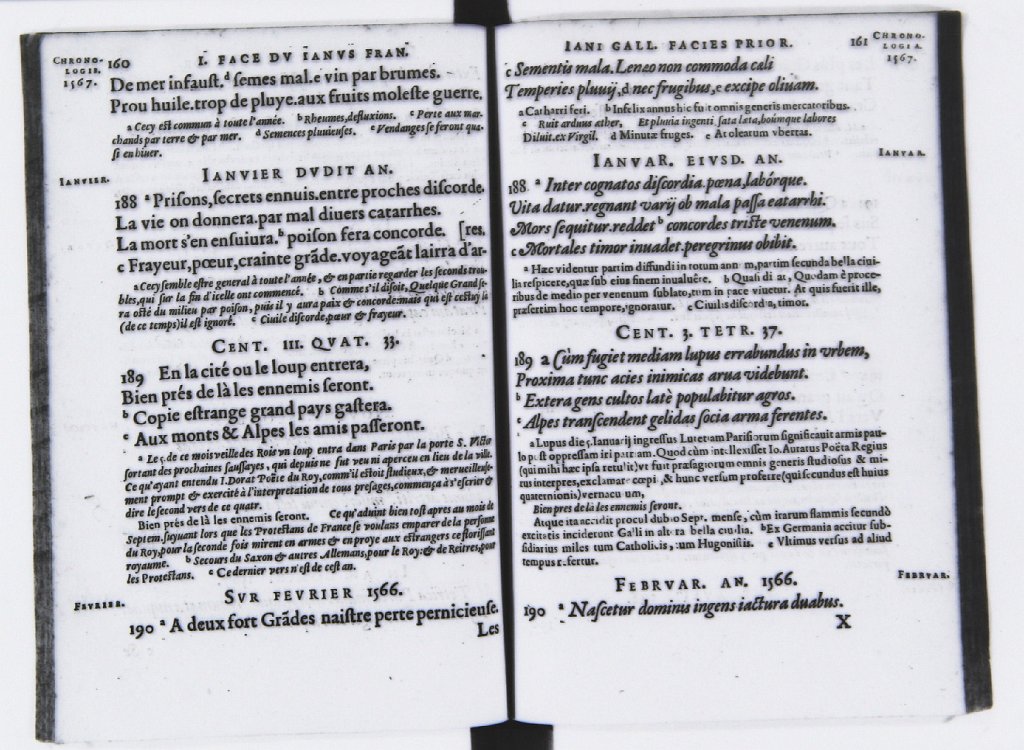 CHRONO-
LOGIE.
1567.
160 I. FACE DV IANVS FRAN.
De mer infaust.ᵈ semes mal.e vin par brumes.
Prou huile.trop de pluye.aux fruits moleste guerre.
a Cecy est commun à toute l'année. b Rheumes,defluxions. c Perte aux mar-
chands par terre & par mer. d Semences pluuieuses. e Vendanges se feront qua-
si en hiuer.
IANVIER.
IANVIER DVDIT AN.
188 ᵃ Prisons,secrets ennuis.entre proches discorde.
La vie on donnera.par mal diuers catarrhes.
La mort s'en ensuiura.ᵇ poison fera concorde. [res.
c Frayeur,pœur,crainte grãde.voyageãt lairra d'ar-
a Cecy semble estre general à toute l'année, & en partie regarder les seconds trou-
bles,qui sur la fin d'icelle ont commencé. b Comme s'il disoit, Quelque Grand se-
ra osté du milieu par poison, puis il y aura paix & concorde:mais qui est cestuy là
(de ce temps)il est ignoré. c Ciuile discorde,pœur & frayeur.
CENT. III. QVAT. 33.
189 En la cité ou le loup entrera,
Bien prés de là les ennemis seront.
ᵇ Copie estrange grand pays gastera.
ᶜ Aux monts & Alpes les amis passeront.
a Le 5. de ce mois veille des Rois vn loup entra dans Paris par la porte S. Victor
sortant des prochaines saussayes, qui depuis ne fut veu ni aperceu en lieu de la ville.
Ce qu'ayant entendu I.Dorat Poëte du Roy,comm'il estoit studieux,& merueilleuse-
ment prompt & exercité à l'interpretation de tous presages,commença à s'escrier &
dire le second vers de ce quatr.
Bien prés de là les ennemis seront. Ce qu'aduint bien tost apres au mois de
Septem.suyuant lors que les Protestans de France se voulans emparer de la personne
du Roy,pour la seconde fois mirent en armes & en proye aux estrangers ce florissant
royaume. b Secours du Saxon & autres Allemans,pour le Roy:& de Reitres,pour
les Protestans. c Ce dernier vers n'est de cest an.
FEVRIER.
SVR FEVRIER 1566.
190 ᵃ A deux fort Grãdes naistre perte pernicieuse.
Les
IANI GALL. FACIES PRIOR. 161
CHRONO-
LOGIA.
1567.
c Sementis mala. Leneo non commoda cæli
Temperies pluuij,d nec frugibus,e excipe oliuam.
a Catharri feri. b Infelix annus hic fuit omnis generis mercatoribus.
c Ruit arduus æther, Et pluuia ingenti sata læta,boúmque labores
Diluit.ex Virgil. d Minutæ fruges. e At olearum vbertas.
IANVAR.
IANVAR. EIVSD. AN.
188. ᵃ Inter cognatos discordia.pœna,labórque.
Vita datur.regnant varij ob mala passa catarrhi.
Mors sequitur.reddet ᵇ concordes triste venenum.
c Mortales timor inuadet.peregrinus obibit.
a Hæc videntur partim diffundi in totum annum,partim secunda bella ciui-
lia respicere,quæ sub eius finem inualuêre. b Quasi dicat, Quodam è proce-
ribus de medio per venenum sublato,tum in pace viuetur. At quis fuerit ille,
præsertim hoc tempore,ignoratur. c Ciuilis discordia, timor.
CENT. 3. TETR. 37.
189 a Cùm fugiet mediam lupus errabundus in vrbem,
Proxima tunc acies inimicas arua videbunt.
ᵇ Extera gens cultos latè populabitur agros.
ᶜ Alpes transcendent gelidas socia arma ferentes.
a Lupus die 5.Ianuarij ingressus Lutetiam Parisiorum significauit armis pau-
lo pòst oppressam iri patriam. Quod cùm intellexisset Io.Auratus Poëta Regius
(qui mihi hæc ipsa retulit)vt fuit præsagiorum omnis generis studiosus & mi-
rus interpres,exclamare cœpit, & hunc versum proferre(qui secundus est huius
quaternionis)vernaculum,
Bien pres de là les ennemis seront.
Atque ita accidit procul dubio Sept. mense, cùm irarum flammis secundò
excitatis inciderunt Galli in altera bella ciuilia. b Ex Germania accitur sub-
sidiarius miles tum Catholicis, tum Hugonistis. c Vltimus versus ad aliud
tempus refertur.
FEBRVAR.
FEBRVAR. AN. 1566.
190 ᵃ Nascetur dominis ingens iactura duabus.
X